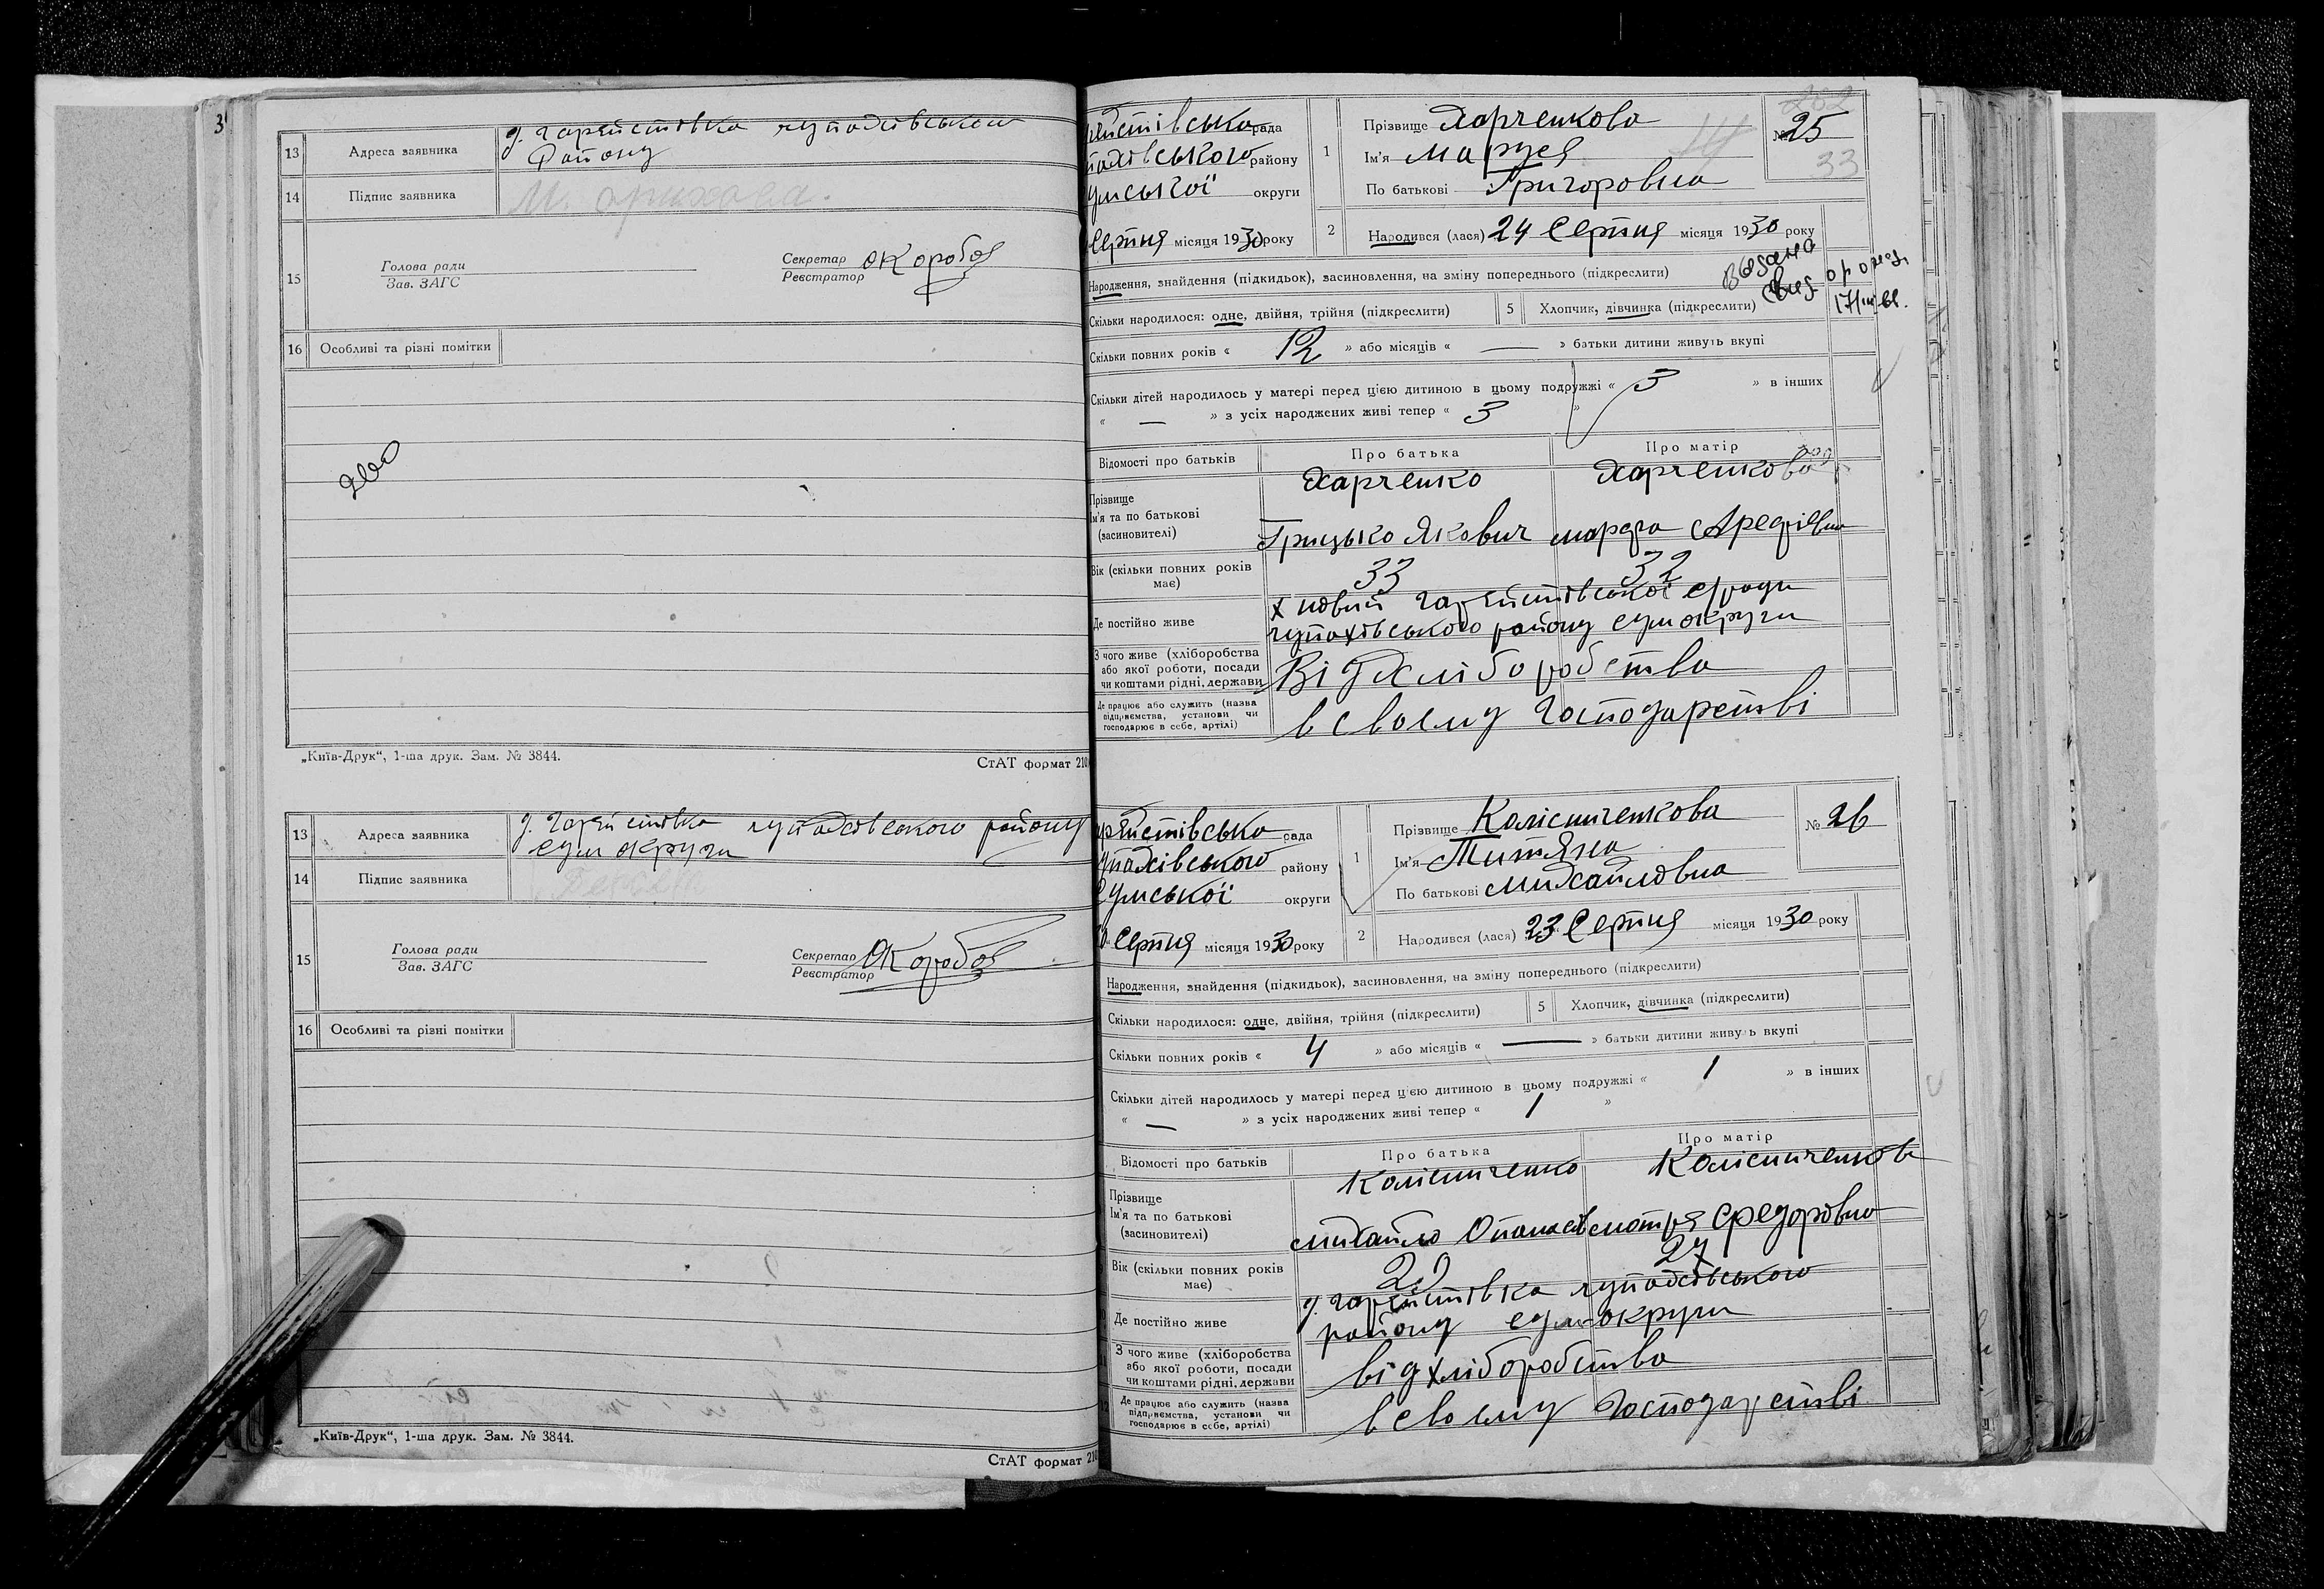 3
13 Адреса заявника
району
14 Підпис заявника
15 Голова ради
Зав. ЗАГС
Секретар
Реєстратор ОКоробов
16 Особливі та різні помітки
„Київ-Друк“, 1-ша друк. Зам. № 3844.
СтАТ формат 210
13 Адреса заявника
району
сум округи
14 Підпис заявника
15 Голова ради
Зав. ЗАГС
Секретар
Реєстратор ОКоробов
16 Особливі та різні помітки
„Київ-Друк“, 1-ша друк. Зам. № 3844.
СтАТ формат 210
рада
району
округи
Серпня місяця 1930 року
1 Прізвище Харченкова
Ім'я Маруся
По батькові Григоровна
№ 25
33
2 Народився (лася) 24 Серпня місяця 1930 року
Народження, знайдення (підкидьок), засиновлення, на зміну попереднього (підкреслити)
Скільки народилося: одне, двійня, трійня (підкреслити)
5 Хлопчик, дівчинка (підкреслити)
Скільки повних років « 12 » або місяців « — » батьки дитини живуть вкупі
Скільки дітей народилось у матері перед цією дитиною в цьому подружжі « 3 » в інших
« — » з усіх народжених живі тепер « 3 »
Відомості про батьків
Про батька
Про матір
Прізвище
Ім'я та по батькові
(засиновителі)
Харченко
Харченкова
Грицько Якович
Вік (скільки повних років має)
33
32
Де постійно живе
району сум округи
З чого живе (хліборобства або якої роботи, посади чи коштами рідні, держави
Від Хліборобства
Де працює або служить (назва підприємства, установи чи господарює в себе, артілі)
в своєму Господарстві
рада
району
Сумської округи
Серпня місяця 1930 року
1 Прізвище Калістиченкова
Ім'я Титяна
По батькові Михайловна
№ 26
2 Народився (лася) 23 Серпня місяця 1930 року
Народження, знайдення (підкидьок), засиновлення, на зміну попереднього (підкреслити)
Скільки народилося: одне, двійня, трійня (підкреслити)
5 Хлопчик, дівчинка (підкреслити)
Скільки повних років « 4 » або місяців « — » батьки дитини живуть вкупі
Скільки дітей народилось у матері перед цією дитиною в цьому подружжі « 1 » в інших
« — » з усіх народжених живі тепер « 1 »
Відомості про батьків
Про батька
Про матір
Прізвище
Ім'я та по батькові
(засиновителі)
Калістиченко
Михайло
Федоровна
Вік (скільки повних років має)
27
Де постійно живе
району сум округи
З чого живе (хліборобства або якої роботи, посади чи коштами рідні, держави
від хліборобства
Де працює або служить (назва підприємства, установи чи господарює в себе, артілі)
в своєму Господарстві